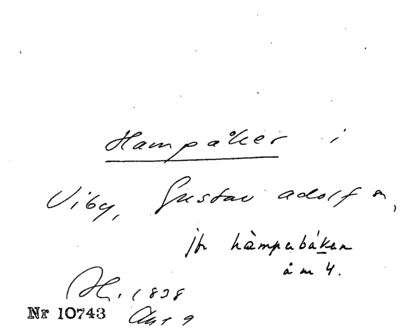 Hampåker i
Viby, Gustav Adolf sn,
jfr hàmpabáken
å m 4.
1898
Nr 10743